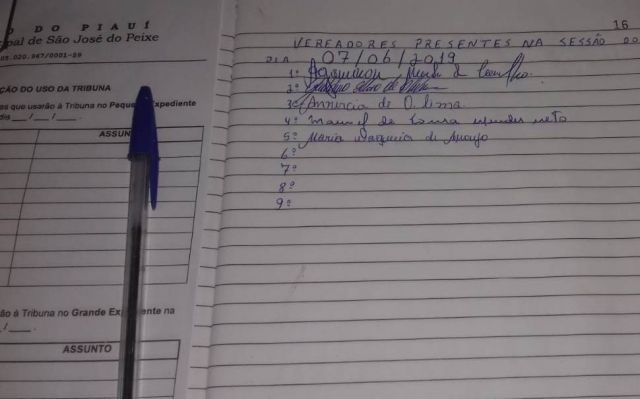 O DO PIAUÍ
pal de São José do Peixe
ÇÃO DO USO DA TRIBUNA
es que usarão à Tribuna no Pequ Expediente
dia ___/___/___.
ASSUN
ão à Tribuna no Grande Exp ente na
/___.
ASSUNTO
16
VEREADORES PRESENTES NA SESSÃO DO
DIA 07/06/2019
1º
2º
3º Annuncia de O. lima
4º Manoel de Sousa mendes neto
5º Maria de Araujo
6º
7º
8º
9º